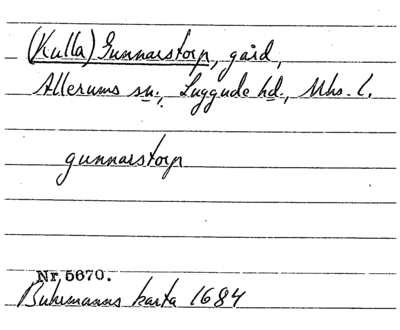 (Kulla) Gunnarstorp, gård,
Allerums sn., Luggude hd., Mhs. l.
gunnarstorp
Nr 5670.
Buhrmanns karta 1684